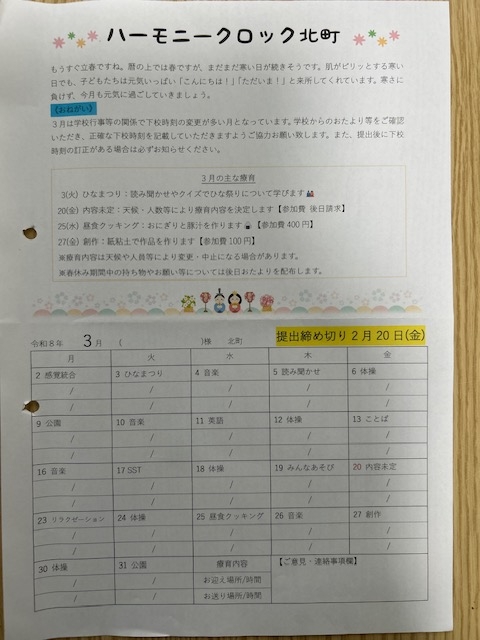 ハーモニークロック北町
もうすぐ立春ですね。暦の上では春ですが、まだまだ寒い日が続きそうです。肌がピリッとする寒い
日でも、子どもたちは元気いっぱい「こんにちは！」「ただいま！」と来所してくれています。寒さに
負けず、今月も元気に過ごしていきましょう。
《おねがい》
３月は学校行事等の関係で下校時刻の変更が多い月となっています。学校からのおたより等をご確認
いただき、正確な下校時刻を記載していただきますようご協力お願い致します。また、提出後に下校
時刻の訂正がある場合は必ずお知らせください。
３月の主な療育
3(火) ひなまつり：読み聞かせやクイズでひな祭りについて学びます🎎
20(金) 内容未定：天候・人数等により療育内容を決定します【参加費 後日請求】
25(水) 昼食クッキング：おにぎりと豚汁を作ります🍙【参加費 400 円】
27(金) 創作：紙粘土で作品を作ります【参加費 100 円】
※療育内容は天候や人員等により変更・中止になる場合があります。
※春休み期間中の持ち物やお願い等については後日おたよりを配布します。
令和８年 3月 ( )様 北町 提出締め切り２月 20 日(金)
月 火 水 木 金
2 感覚統合 3 ひなまつり 4 音楽 5 読み聞かせ 6 体操
/ / / / /
/ / / / /
9 公園 10 音楽 11 英語 12 体操 13 ことば
/ / / / /
/ / / / /
16 音楽 17 SST 18 体操 19 みんなあそび 20 内容未定
/ / / / /
/ / / / /
23 リラクゼーション 24 体操 25 昼食クッキング 26 音楽 27 創作
/ / / / /
/ / / / /
30 体操 31 公園 療育内容 【ご意見・連絡事項欄】
/ / お迎え場所/時間
/ / お送り場所/時間